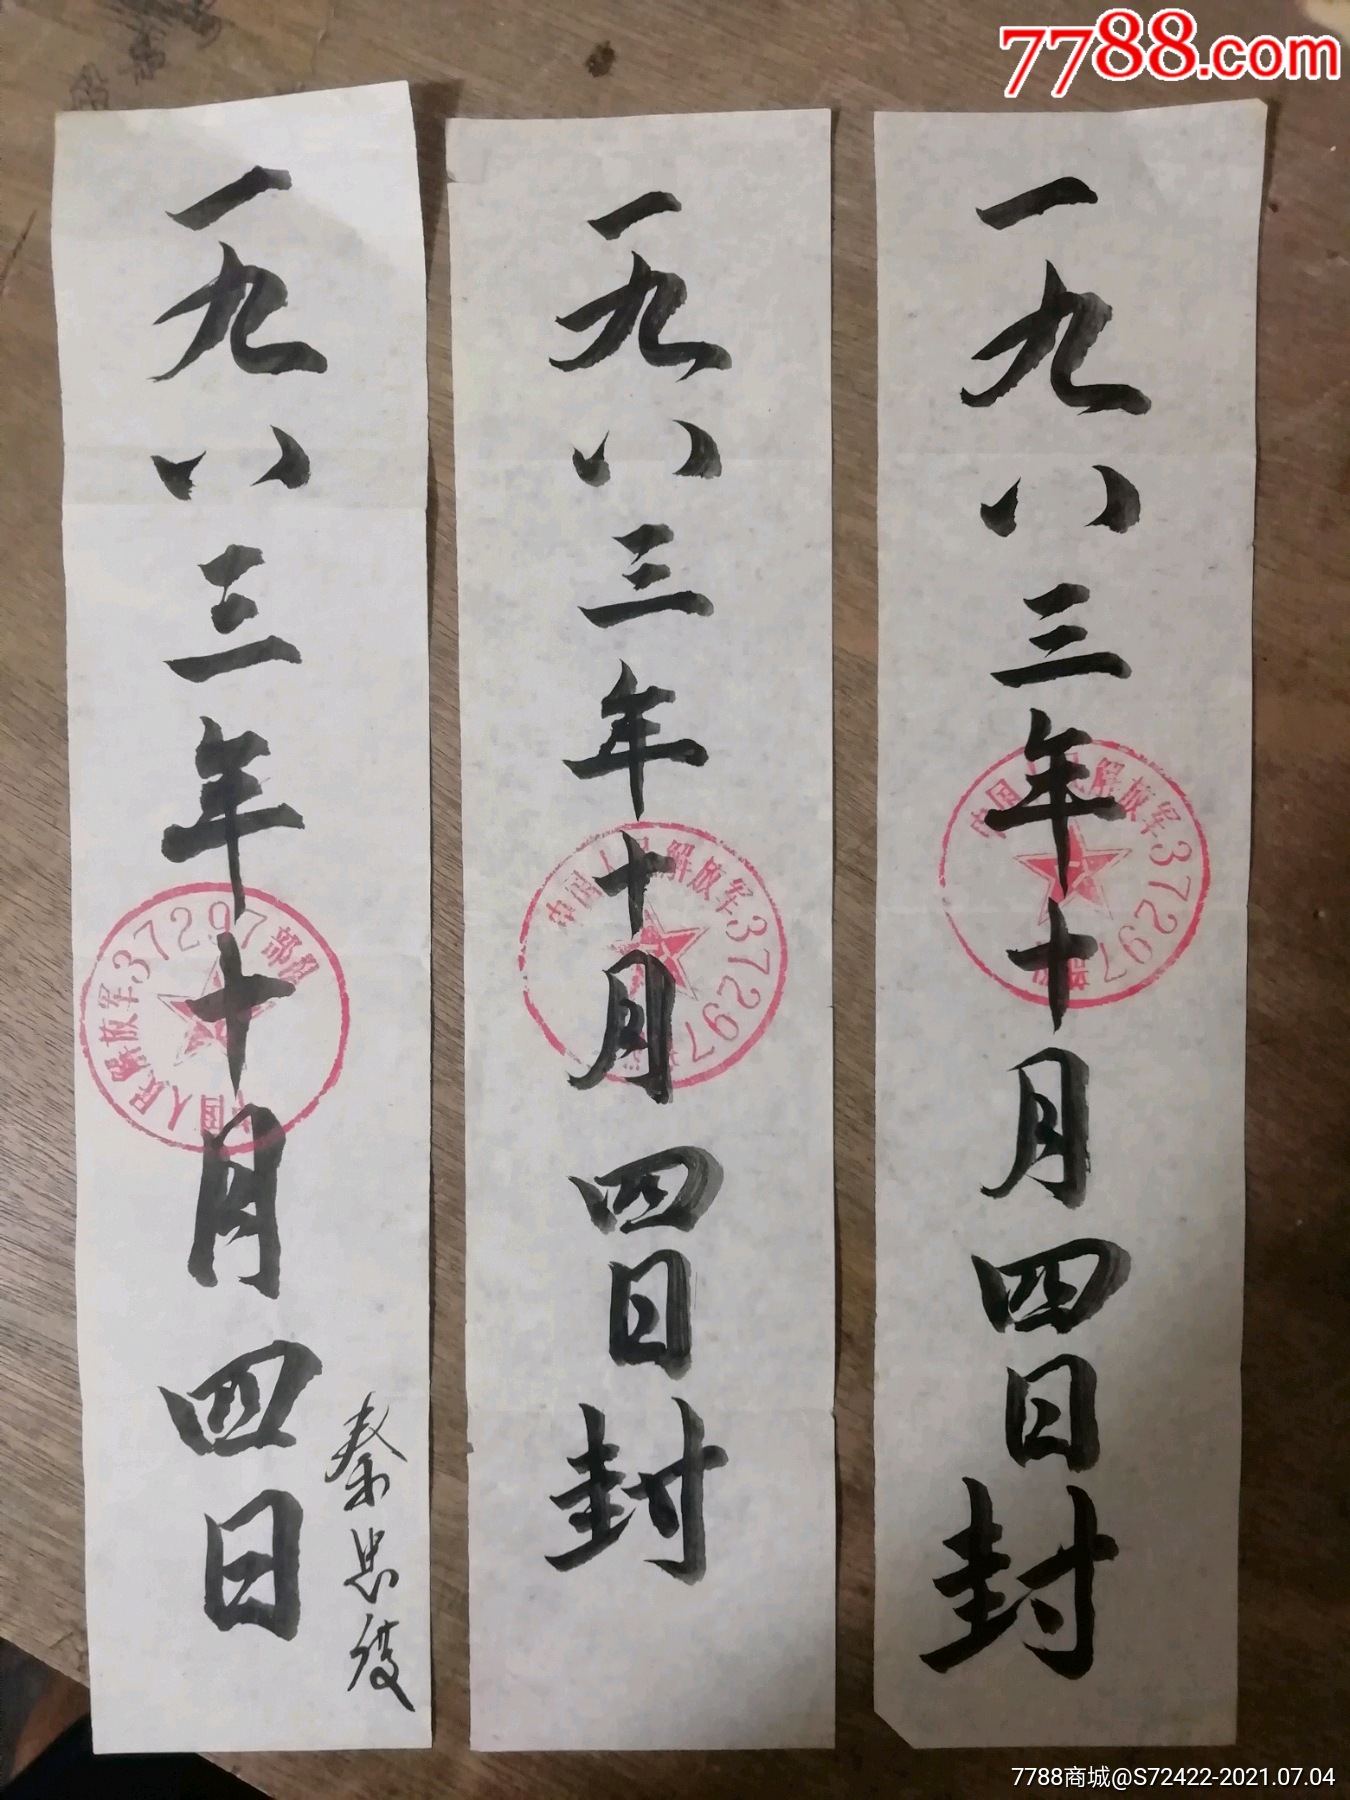 7788.com
一九八三年十月四日
秦思
中国人民解放军37297部队
一九八三年十月四日封
中国人民解放军37297
一九八三年十月四日封
中国人民解放军37297部
7788商城@S72422-2021.07.04